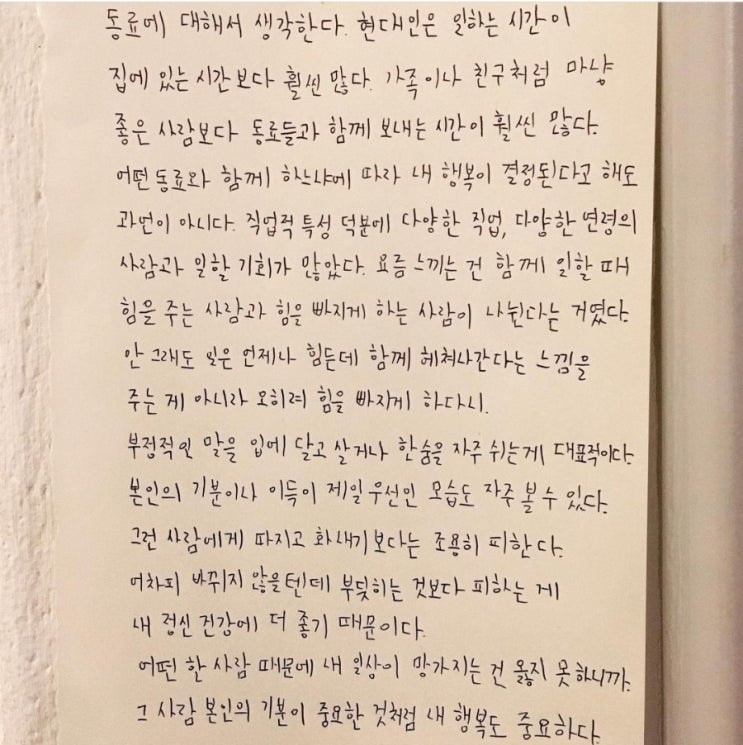 동료에 대해서 생각한다. 현대인은 일하는 시간이
집에 있는 시간보다 훨씬 많다. 가족이나 친구처럼 마냥
좋은 사람보다 동료들과 함께 보내는 시간이 훨씬 많다.
어떤 동료와 함께 하느냐에 따라 내 행복이 결정된다고 해도
과언이 아니다. 직업적 특성 덕분에 다양한 직업, 다양한 연령의
사람과 일할 기회가 많았다. 요즘 느끼는 건 함께 일할 때
힘을 주는 사람과 힘을 빠지게 하는 사람이 나뉜다는 거였다.
안 그래도 일은 언제나 힘든데 함께 헤쳐나간다는 느낌을
주는 게 아니라 오히려 힘을 빠지게 하다니.
부정적인 말을 입에 달고 살거나 한숨을 자주 쉬는게 대표적이다.
본인의 기분이나 이득이 제일 우선인 모습도 자주 볼 수 있다.
그런 사람에게 따지고 화내기보다는 조용히 피한다.
어차피 바뀌지 않을텐데 부딪히는 것보다 피하는 게
내 정신 건강에 더 좋기 때문이다.
어떤 한 사람 때문에 내 일상이 망가지는 건 옳지 못하니까.
그 사람 본인의 기분이 중요한 것처럼 내 행복도 중요하다.